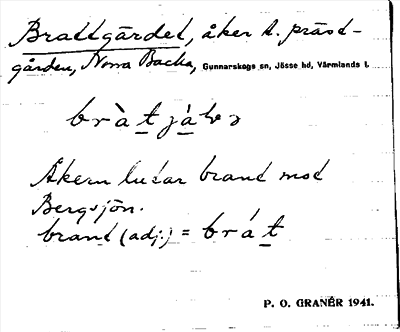 Brattgärdet, åker t. präst-
gården, Norra Backa, Gunnarskogs sn, Jösse hd, Värmlands l.
bràtjálǝ
Åkern lutar brant mot
Bergsjön.
brant (adj.) = brát
P. O. GRANÉR 1941.